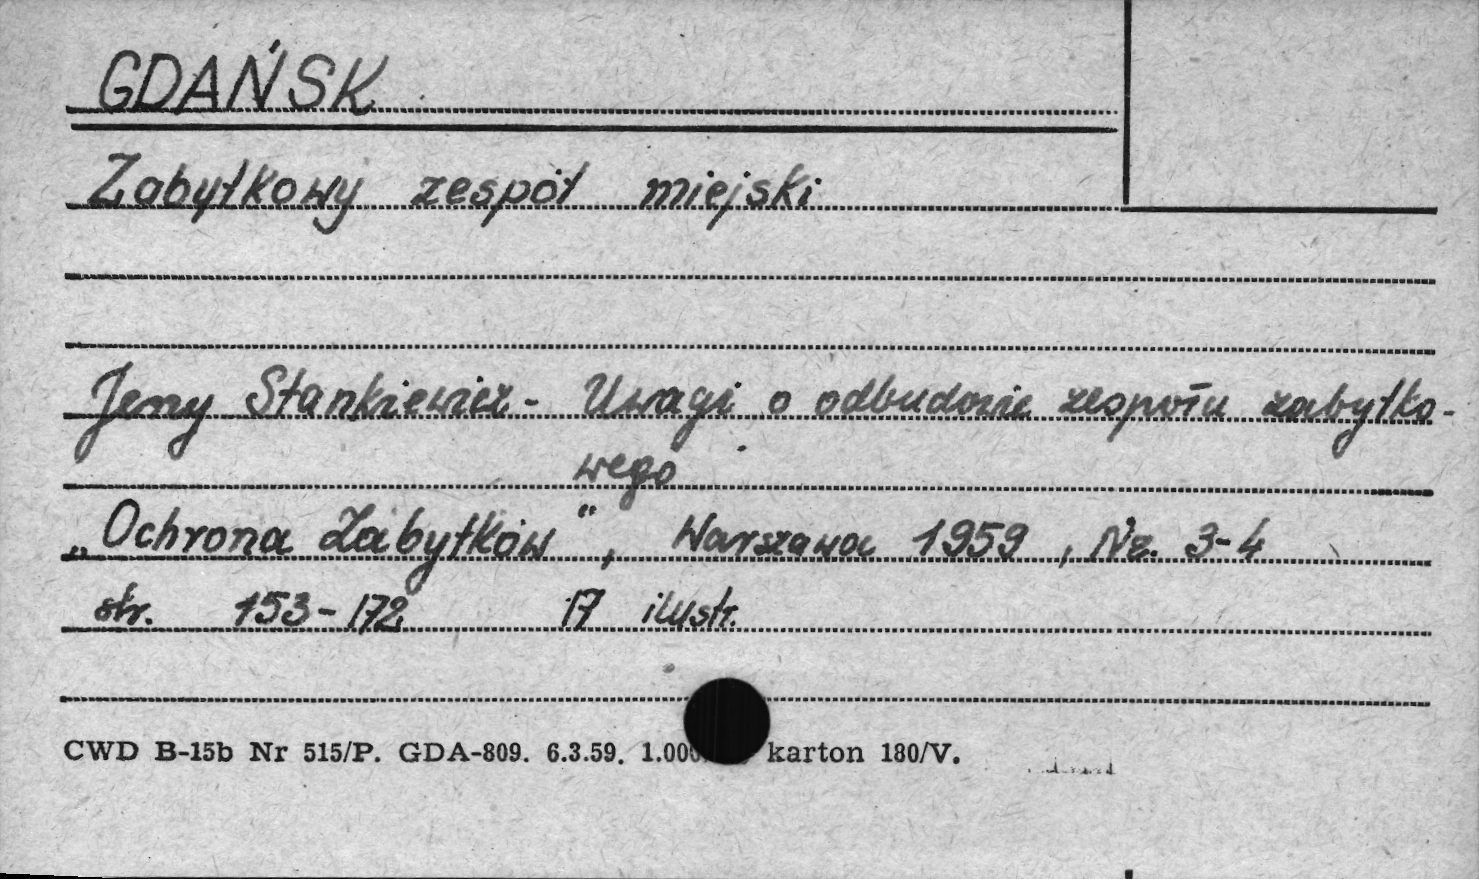 GDAŃSK
Zabytkowy zespół miejski
Jerzy Stankiewicz - Uwagi o odbudowie zespołu zabytko-
wego
„Ochrona Zabytków", Warszawa 1959, Nr. 3-4
str. 153-172 17 ilustr.
CWD B-15b Nr 515/P. GDA-809. 6.3.59. karton 180/V.